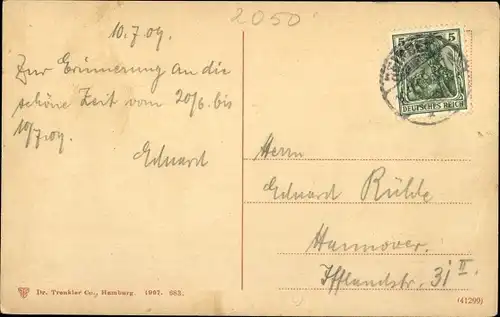 2050
10.7.09.
Zur Erinnerung an die
schöne Zeit vom 20/6. bis
10/7.09.
Eduard
5 5
DEUTSCHES REICH
Herrn
Eduard Rühle
Hannover.
Ifflandstr. 31 II
Dr. Trenkler Co., Hamburg. 1907. 582.
(41299)